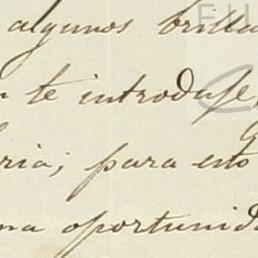 algunos brilla
te introduje,
ria; para esto
na oportunida